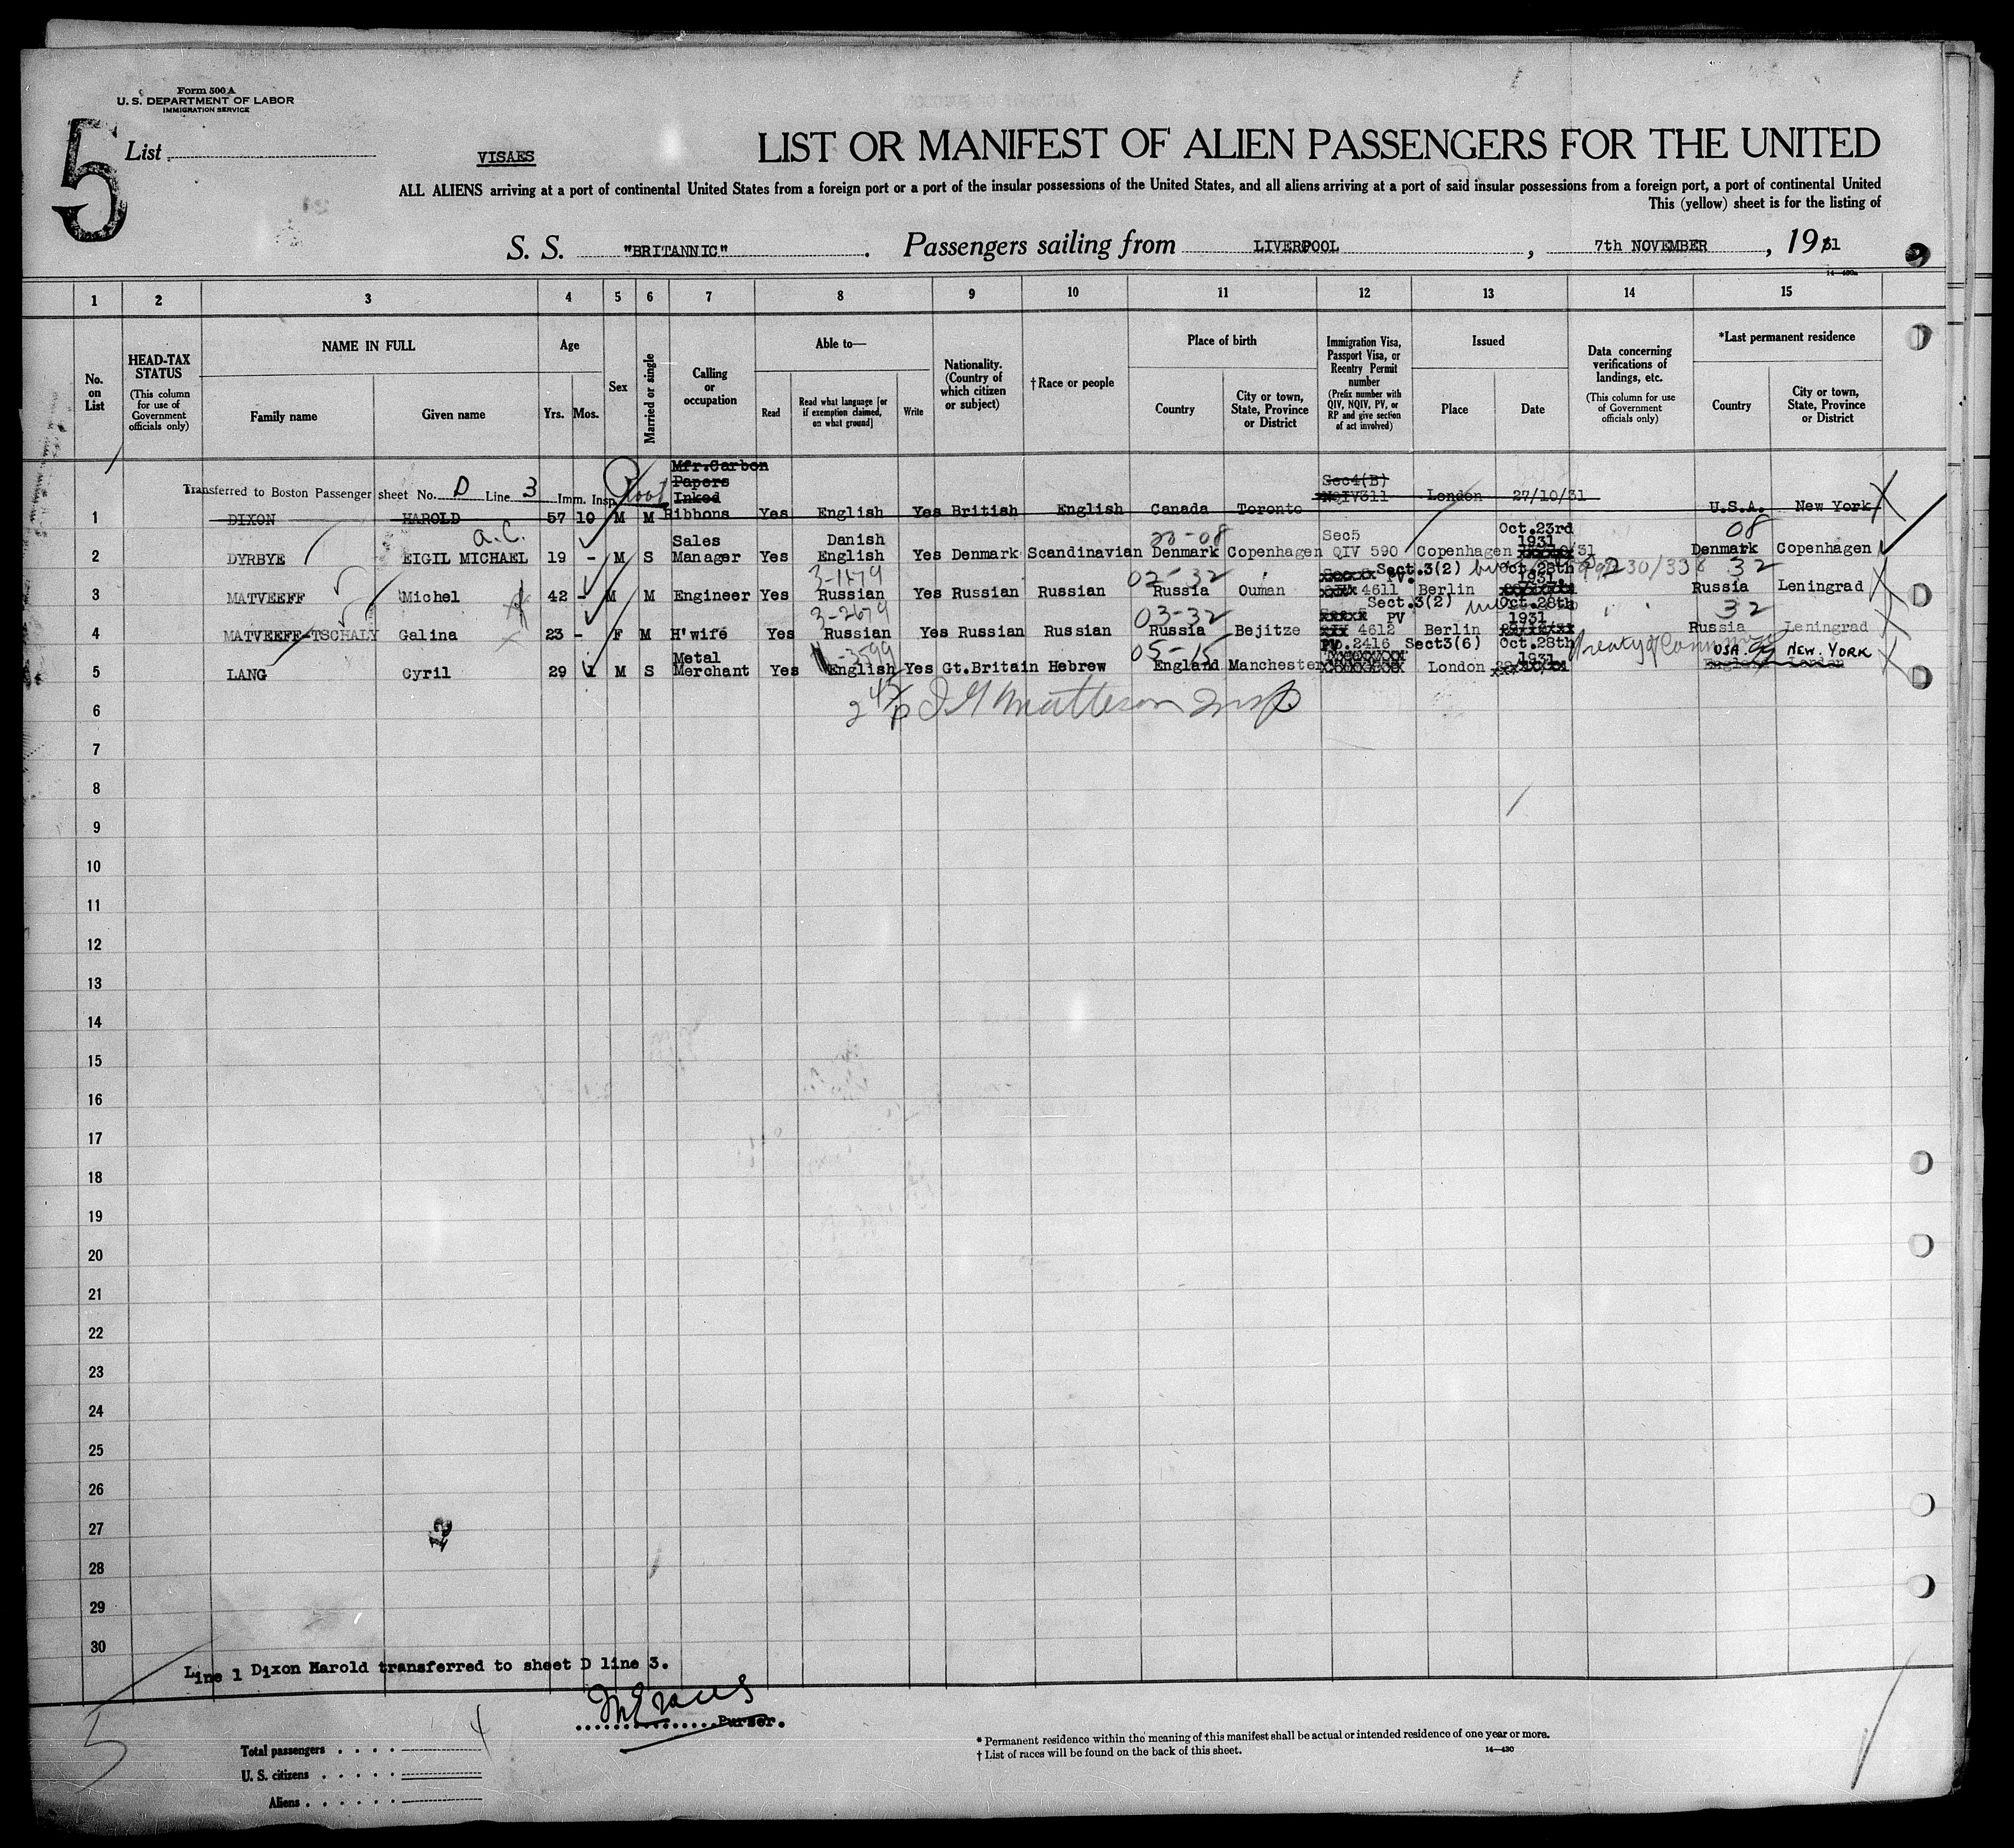 Form 500 A
U. S. DEPARTMENT OF LABOR
IMMIGRATION SERVICE
5
List
VISAES
LIST OR MANIFEST OF ALIEN PASSENGERS FOR THE UNITED
ALL ALIENS arriving at a port of continental United States from a foreign port or a port of the insular possessions of the United States, and all aliens arriving at a port of said insular possessions from a foreign port, a port of continental United
This (yellow) sheet is for the listing of
S. S. "BRITANNIC". Passengers sailing from LIVERPOOL, 7th NOVEMBER, 1931
1 2 3 4 5 6 7 8 9 10 11 12 13 14 15
No. on List
HEAD-TAX STATUS
(This column for use of Government officials only)
NAME IN FULL
Family name
Given name
Age
Yrs. Mos.
Sex
Married or single
Calling or occupation
Able to—
Read
Read what language [or if exemption claimed, on what ground]
Write
Nationality. (Country of which citizen or subject)
† Race or people
Place of birth
Country
City or town, State, Province or District
Immigration Visa, Passport Visa, or Reentry Permit number
(Prefix number with QIV, NQIV, PV, or RP and give section of act involved)
Issued
Place
Date
Data concerning verifications of landings, etc.
(This column for use of Government officials only)
*Last permanent residence
Country
City or town, State, Province or District
Transferred to Boston Passenger sheet No. D Line 3 Imm. Insp.
Mfr. Carbon Papers Inked
Sec4(B)
1 DIXON HAROLD 57 10 M M Ribbons Yes English Yes British English Canada Toronto NQIV311 London 27/10/31 U.S.A. New York
a.c. Sales Danish Sec5 Oct.23rd 1931 08
2 DYRBYE EIGIL MICHAEL 19 - M S Manager Yes English Yes Denmark Scandinavian Denmark Copenhagen QIV 590 Copenhagen Denmark Copenhagen
02-32 Sect.3(2) PV. Oct.28th 1931. 32
3 MATVEEFF Michel 42 - M M Engineer Yes Russian Yes Russian Russian Russia Ouman 4611 Berlin Russia Leningrad
3-2679 03-32 Sect.3(2) PV Oct.28th 1931 32
4 MATVEEFF-TSCHALY Galina 23 - F M H'wife Yes Russian Yes Russian Russian Russia Bejitze 4612 Berlin Russia Leningrad
Metal 05-15 PV.2416 Sect3(6) Oct.28th 1931 USA. NEW. YORK
5 LANG Cyril 29 1 M S Merchant Yes English Yes Gt.Britain Hebrew England Manchester London England London
6
7
8
9
10
11
12
13
14
15
16
17
18
19
20
21
22
23
24
25
26
27
28
29
30
Line 1 Dixon Harold transferred to sheet D line 3.
Purser.
5
4
Total passengers
U. S. citizens
Aliens
* Permanent residence within the meaning of this manifest shall be actual or intended residence of one year or more.
† List of races will be found on the back of this sheet.
14—430